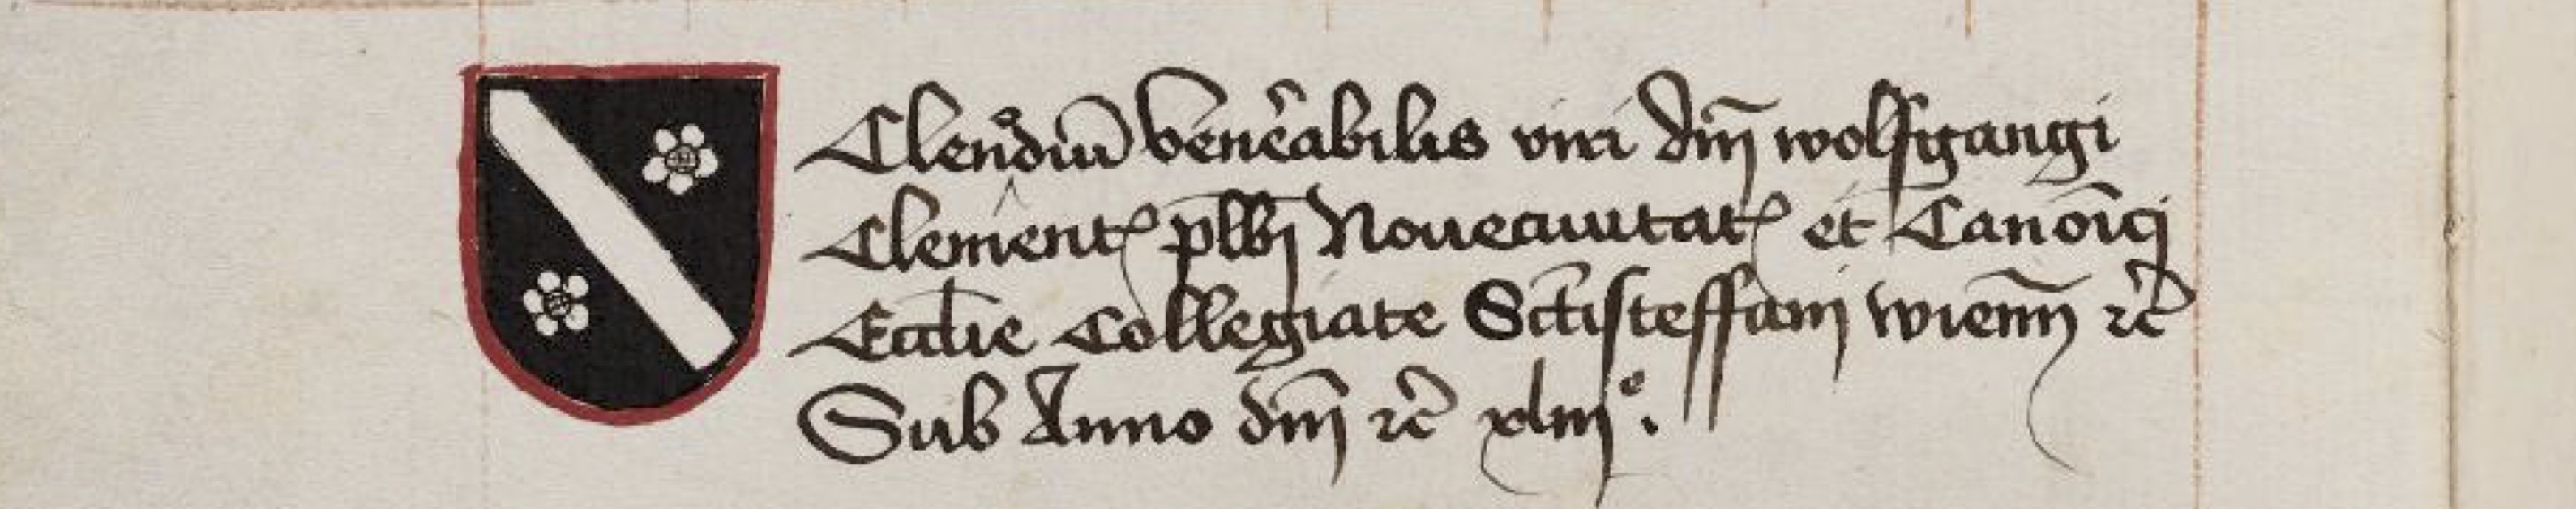 Clenodiu̅ ven̾abilis viri dn̅i wolfgangi
Clementꝭ pl̅bi Noueciuitatꝭ et Cano̅ici
Eccl̅ie Collegiate Sc̅tisteffani wienn̅ ⁊c̾
Sub Anno dn̅i ⁊c̾ xliijᵉ.